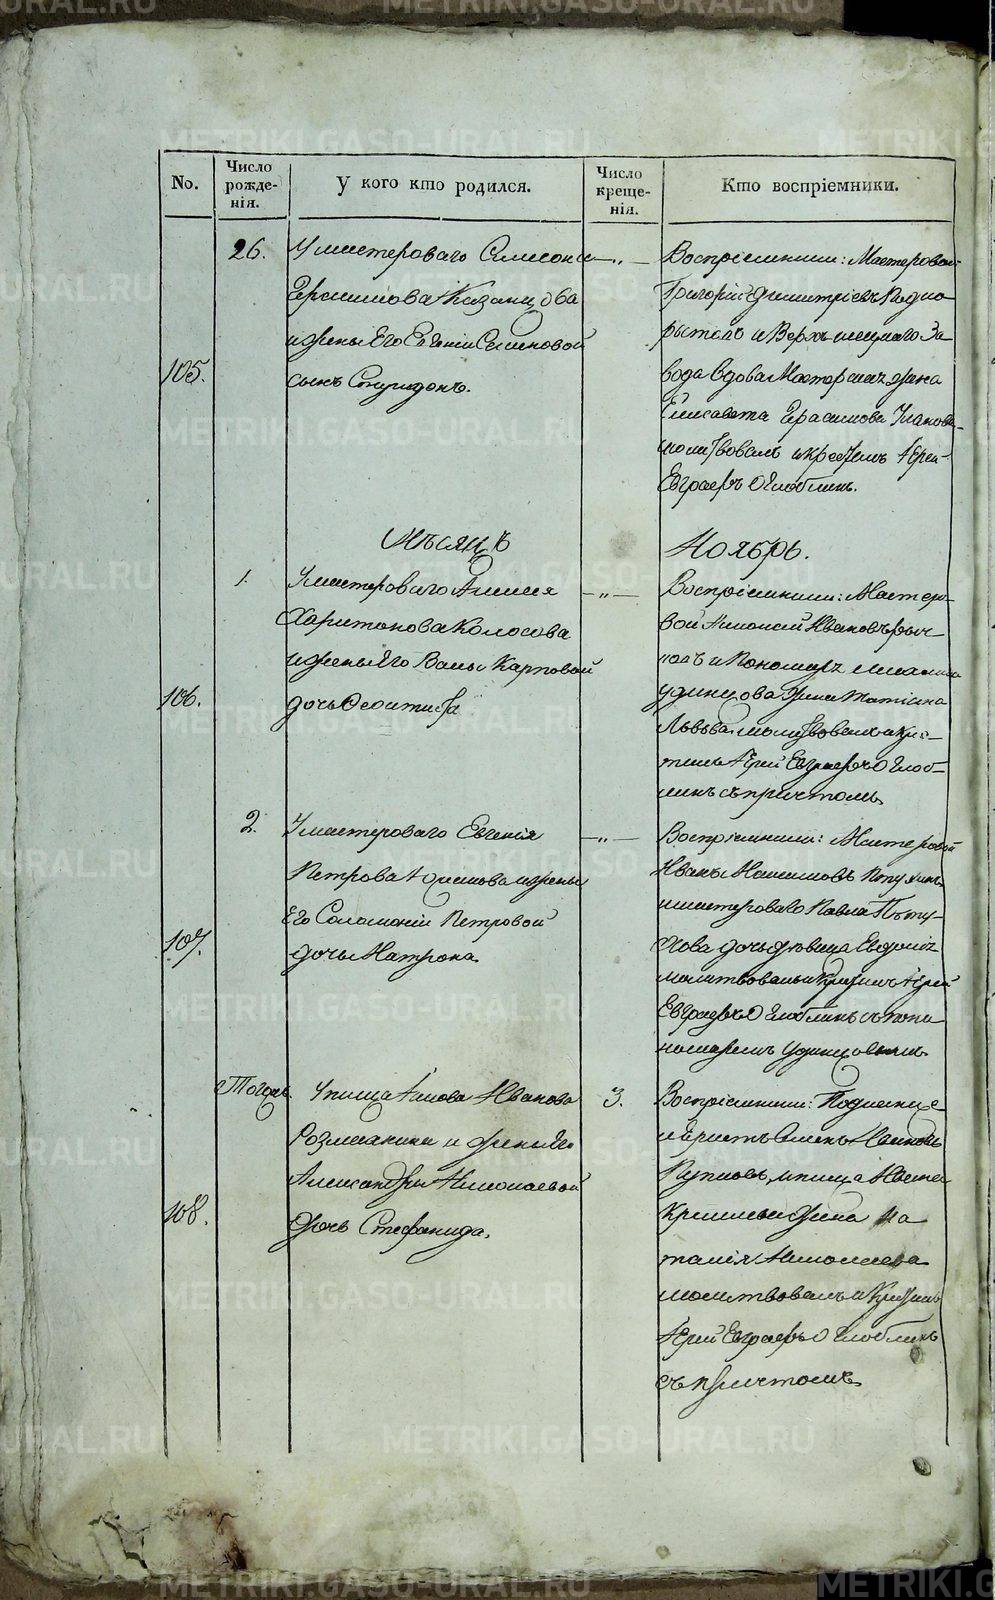 METRIKI.GASO-URAL.RU
No.
Число рожде-нія.
У кого кто родился.
Число креще-нія.
Кто воспріемники.
105.
26.
У мастероваго Симеона
Герасимова Казанцова
и жены Его Евгеніи Семеновой
сынъ Спиридонъ.
— „ —
Воспріемники: Мастеровой
Григорій Димитріевъ Подко-
рытовъ и Верхъ
За-
вода вдова Мастерская жена
Елисавета Герасимова
молитвовалъ и крестилъ Іерей
Евграфъ Оглоблинъ.
Мѣсяцъ
Ноябрь.
106.
1.
У мастероваго
Харитонова Колосова
и жены Его Вассы Карповой
дочь Феоктиста
— „ —
Воспріемники: Мастеро-
вой Николай Ивановъ
и Пономаря
Удинцова жена Татіана
Львова. молитвовалъ и кре-
тилъ Іерей Евграфъ Оглоб-
линъ съ причтомъ.
107.
2.
У мастероваго Евгенія
Петрова
и жены
Его Соломоніи Петровой
дочь Матрона
— „ —
Воспріемники: Мастеровой
Иванъ Максимовъ
и мастероваго Павла Пѣту-
хова дочь дѣвица Евдокія
молитвовалъ и крестилъ Іерей
Евграфъ Оглоблинъ съ поно
номаремъ Удинцовымъ.
108.
Тогожъ.
У писца
Иванова
и жены Его
Александры Николаевой
дочь Стефанида.
3.
Воспріемники:
Семенъ Ивановъ
и писца
жена На
талія Николаева
молитвовалъ и Крестилъ
Іерей Евграфъ Оглоблинъ
съ причтомъ.